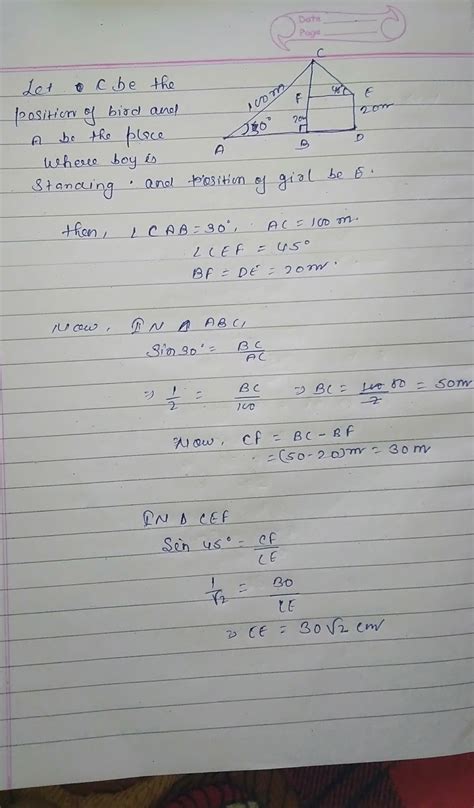 Date
Page
Let C be the
position of bird and
A be the place
where boy is
standing. and position of girl be E.
C
100m
45°
E
F
20m
20m
30°
A
B
D
then, ∠CAB=30°, AC=100m.
∠CEF = 45°
BF = DE = 20m.
Now, IN Δ ABC,
Sin30° = BC/AC
⇒ 1/2 = BC/100 ⇒ BC = 100 50/2 = 50m
Now, CF = BC - BF
=(50-20)m = 30m
IN Δ CEF
Sin 45° = CF/CE
1/√2 = 30/CE
⇒ CE = 30√2 cm